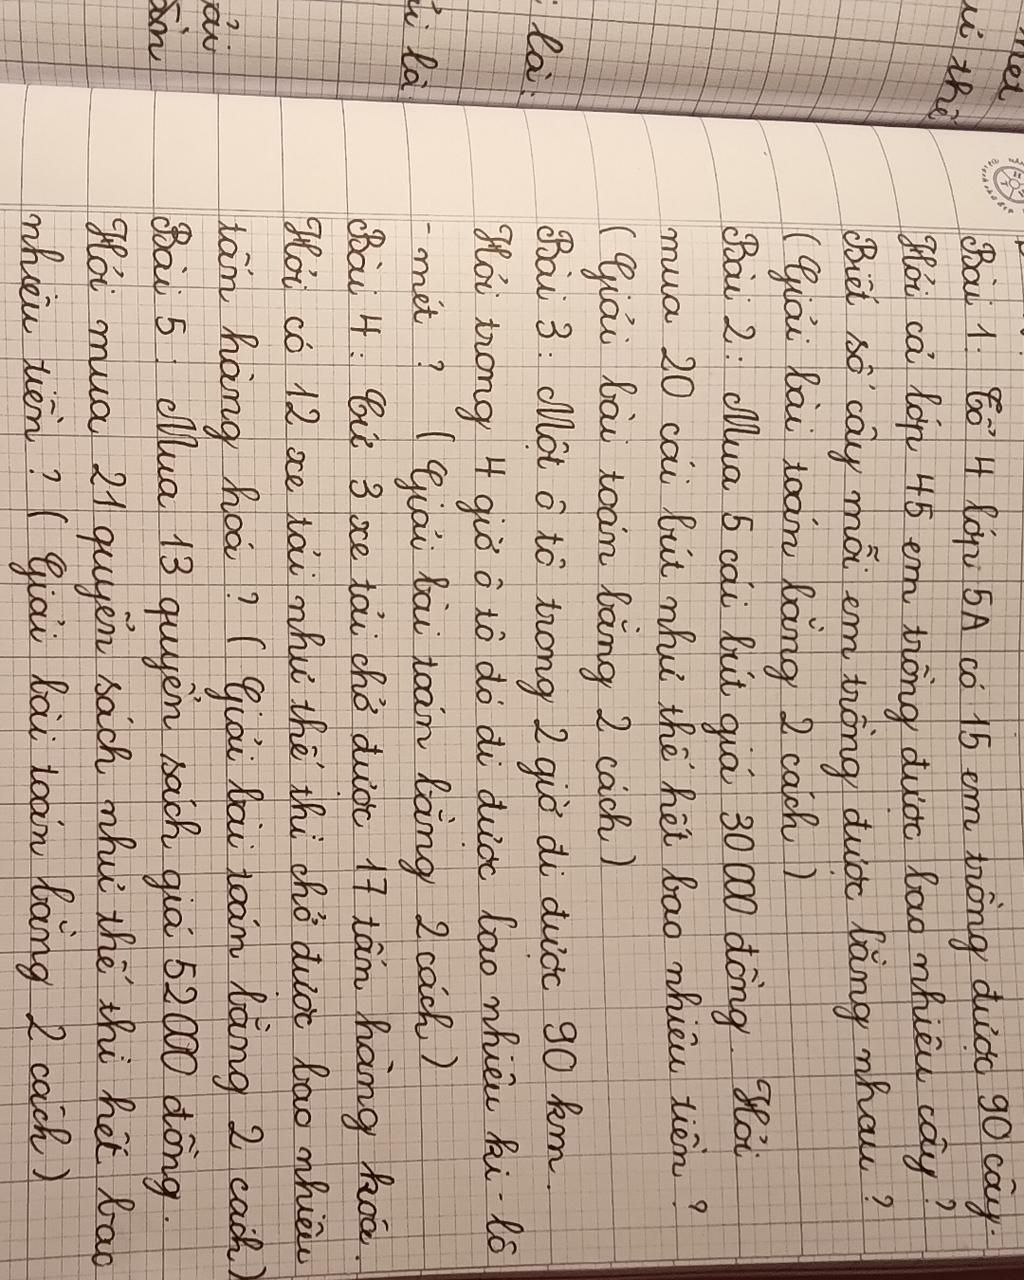 met
ui thê
i là:
ủi là
ải
Bài 1: Tổ 4 lớp 5A có 15 em trồng được 90 cây.
Hỏi cả lớp 45 em trồng được bao nhiêu cây?
Biết số cây mỗi em trồng được bằng nhau?
(Giải bài toán bằng 2 cách)
Bài 2: Mua 5 cái bút giá 30 000 đồng. Hỏi
mua 20 cái bút như thế hết bao nhiêu tiền?
(Giải bài toán bằng 2 cách)
Bài 3: Một ô tô trong 2 giờ đi được 90 km.
Hỏi trong 4 giờ ô tô đó đi được bao nhiêu ki-lô
-mét? (Giải bài toán bằng 2 cách)
Bài 4: Cứ 3 xe tải chở được 17 tấn hàng hóa.
Hỏi có 12 xe tải như thế thì chở được bao nhiêu
tấn hàng hoá? (Giải bài toán bằng 2 cách)
Bài 5: Mua 13 quyển sách giá 52 000 đồng.
Hỏi mua 21 quyển sách như thế thì hết bao
nhiêu tiền? (Giải bài toán bằng 2 cách)